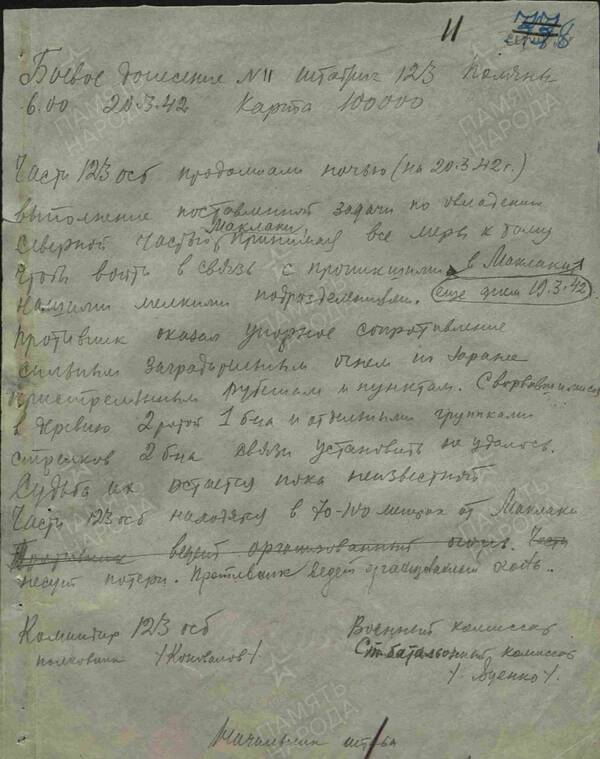 11
Боевое донесение №11 штабриг 123 Поляны
6.00 20.3.42 Карта 100000
Части 123 осб продолжали ночью (на 20.3.42 г.)
выполнение поставленной задачи по овладению
северной частью Маклаки, принимая все меры к тому
чтобы войти в связь с проникшими в Маклаки
нашими мелкими подразделениями. еще днем 19.3.42
Противник оказал упорное сопротивление
сильным заградительным огнем по заранее
пристрелянным рубежам и пунктам. С ворвавшимися
в деревню 2 ротой 1 б-на и отдельными группами
стрелков 2 б-на связи установить не удалось.
Судьба их остается пока неизвестной
Части 123 осб находятся в 70-100 метрах от Маклаки
Противник ведет организованный огонь. Части
несут потери. Противник ведет организованный огонь.
Командир 123 осб
полковник /Коновалов/
Военный комиссар
Ст. батальонный комиссар
/Яценко/
Начальник штаба
ПАМЯТЬ НАРОДА